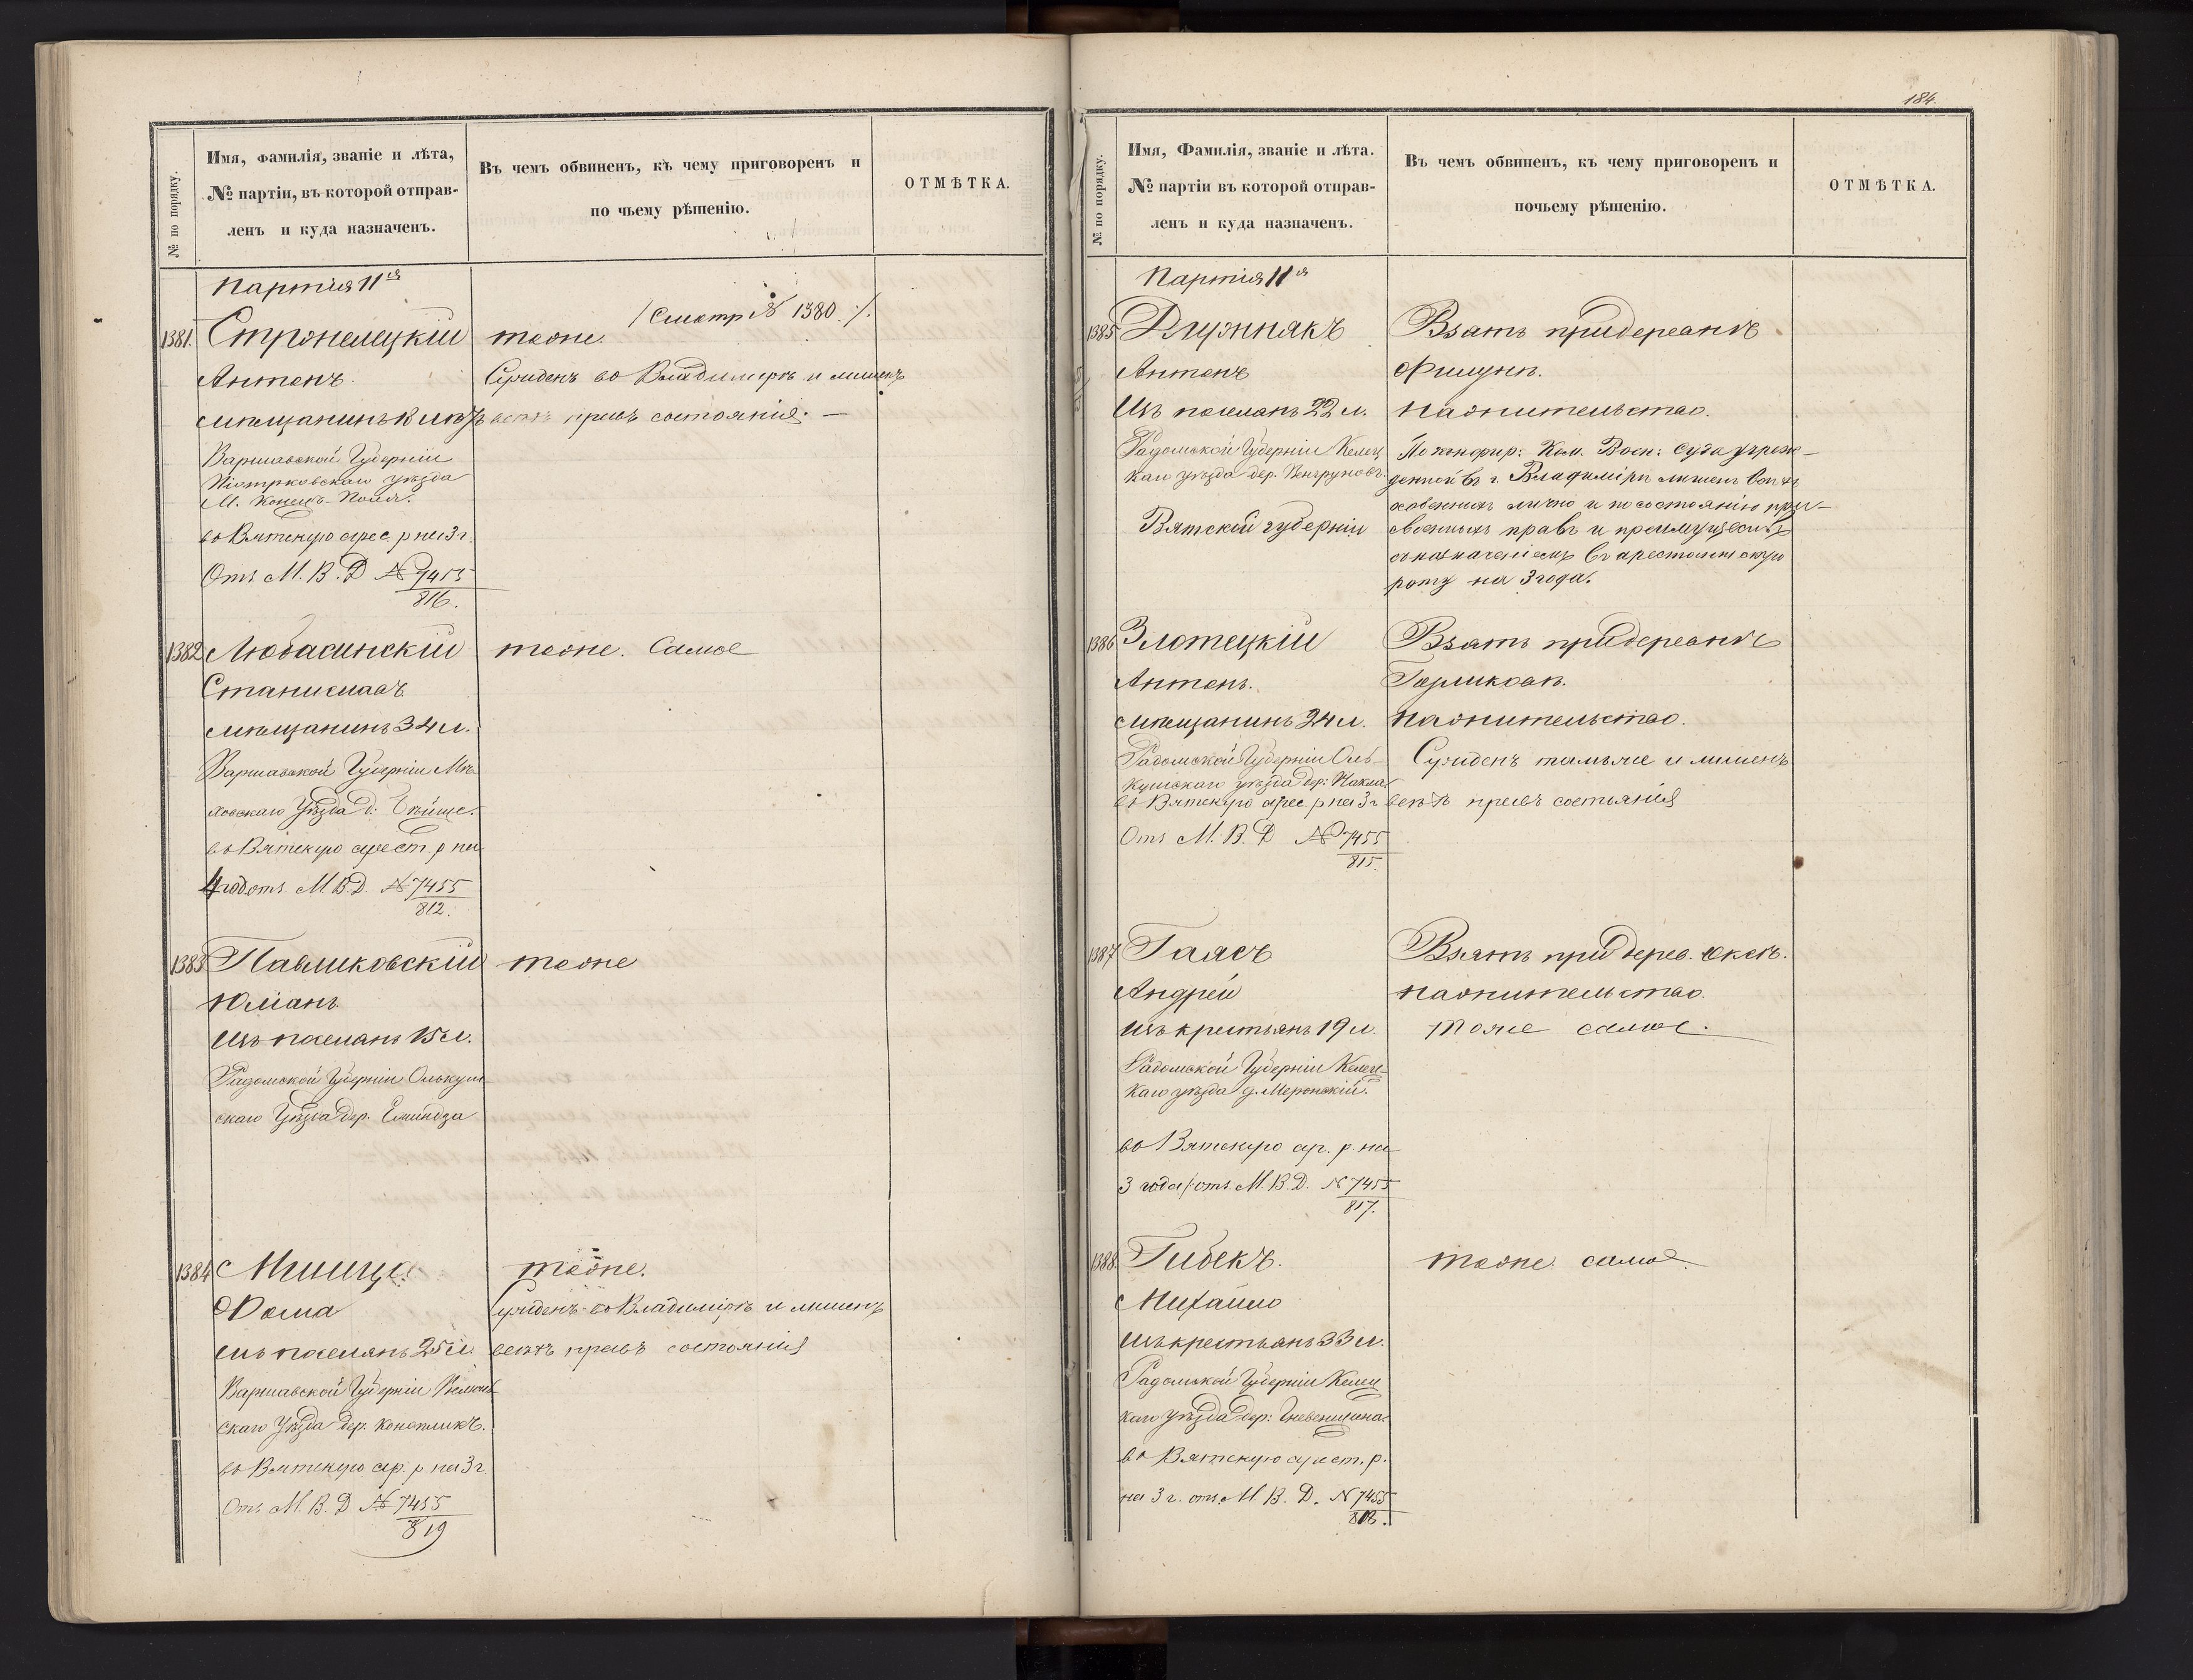 № по порядку.
Имя, фамилія, званіе и лѣта,
№ партіи, въ которой отправ-
ленъ и куда назначенъ.
Въ чемъ обвиненъ, къ чему приговоренъ и
по чьему рѣшенію.
ОТМѢТКА.
Партія 11ая
1381. Стржелецкій
тоже.
/Смотр № 1380 ./.
Антонъ.
Сужденъ во Владимірѣ и лишенъ
Мѣщанинъ
всѣхъ правъ состоянія. —
Варшавской Губерніи
Піотрковскаго уѣзда
М. Конецъ-Поля.
во Вятскую арес. р на 3 г.
Отъ М. В. Д № 7455
816.
1382 Любасинскій
тоже. Самое
Станиславъ
Мѣщанинъ 34 л.
Варшавской Губерніи Мѣ-
ховскаго Уѣзда д.
во Вятскую арест. р на
4 год. отъ М. В. Д. № 7455
812.
1383 Павликовскій
тоже
Юліанъ
Изъ поселянъ 15 л.
Радомской Губерніи Олькуш-
скаго Уѣзда дер.
1384 Мшица
тоже.
Фома
Сужденъ во Владимірѣ и лишенъ
изъ поселянъ 25 л.
всѣхъ правъ состоянія
Варшавской Губерніи
скаго Уѣзда дер. Конопликъ.
во Вятскую ар. р на 3 г.
Отъ М. В. Д № 7455
819
184.
№ по порядку.
Имя, Фамилія, званіе и лѣта.
№ партіи въ которой отправ-
ленъ и куда назначенъ.
Въ чемъ обвиненъ, къ чему приговоренъ и
почьему рѣшенію.
ОТМѢТКА.
Партія 11я
1385 Длужнякъ
Взятъ при деревнѣ
Антонъ
Изъ поселянъ 22 л.
Радомской Губерніи Келец
каго уѣзда дер.
Вятской губерніи
По конфир: Ком. Воен: Суда учреж-
денной въ г. Владимірѣ лишенъ всѣхъ
лично и по состоянію при-
своенныхъ правъ и преимуществъ
съ назначеніемъ въ арестантскую
роту на 3 года.
1386 Злотецкій
Взятъ при деревнѣ
Антонъ.
Мѣщанинъ 24 л.
Радомской Губерніи Оль-
кушскаго уѣзда дер:
Сужденъ тамъ же и лишенъ
во Вятскую арес. р на 3 г
всѣхъ правъ состоянія
Отъ М. В. Д № 7455
815.
1387 Гаясъ
Взятъ при дерев.
Андрей
изъ крестьянъ 19 л.
тоже самое.
Радомской Губерніи Келец-
каго уѣзда д.
во Вятскую ар. р. на
3 года/ отъ М. В. Д. № 7455
817.
1388. Гибекъ.
тоже самое.
Михайло
изъ крестьянъ 33 л.
Радомской Губерніи Келец
каго уѣзда дер:
во Вятскую арест. р.
на 3 г. отъ М. В. Д. № 7455